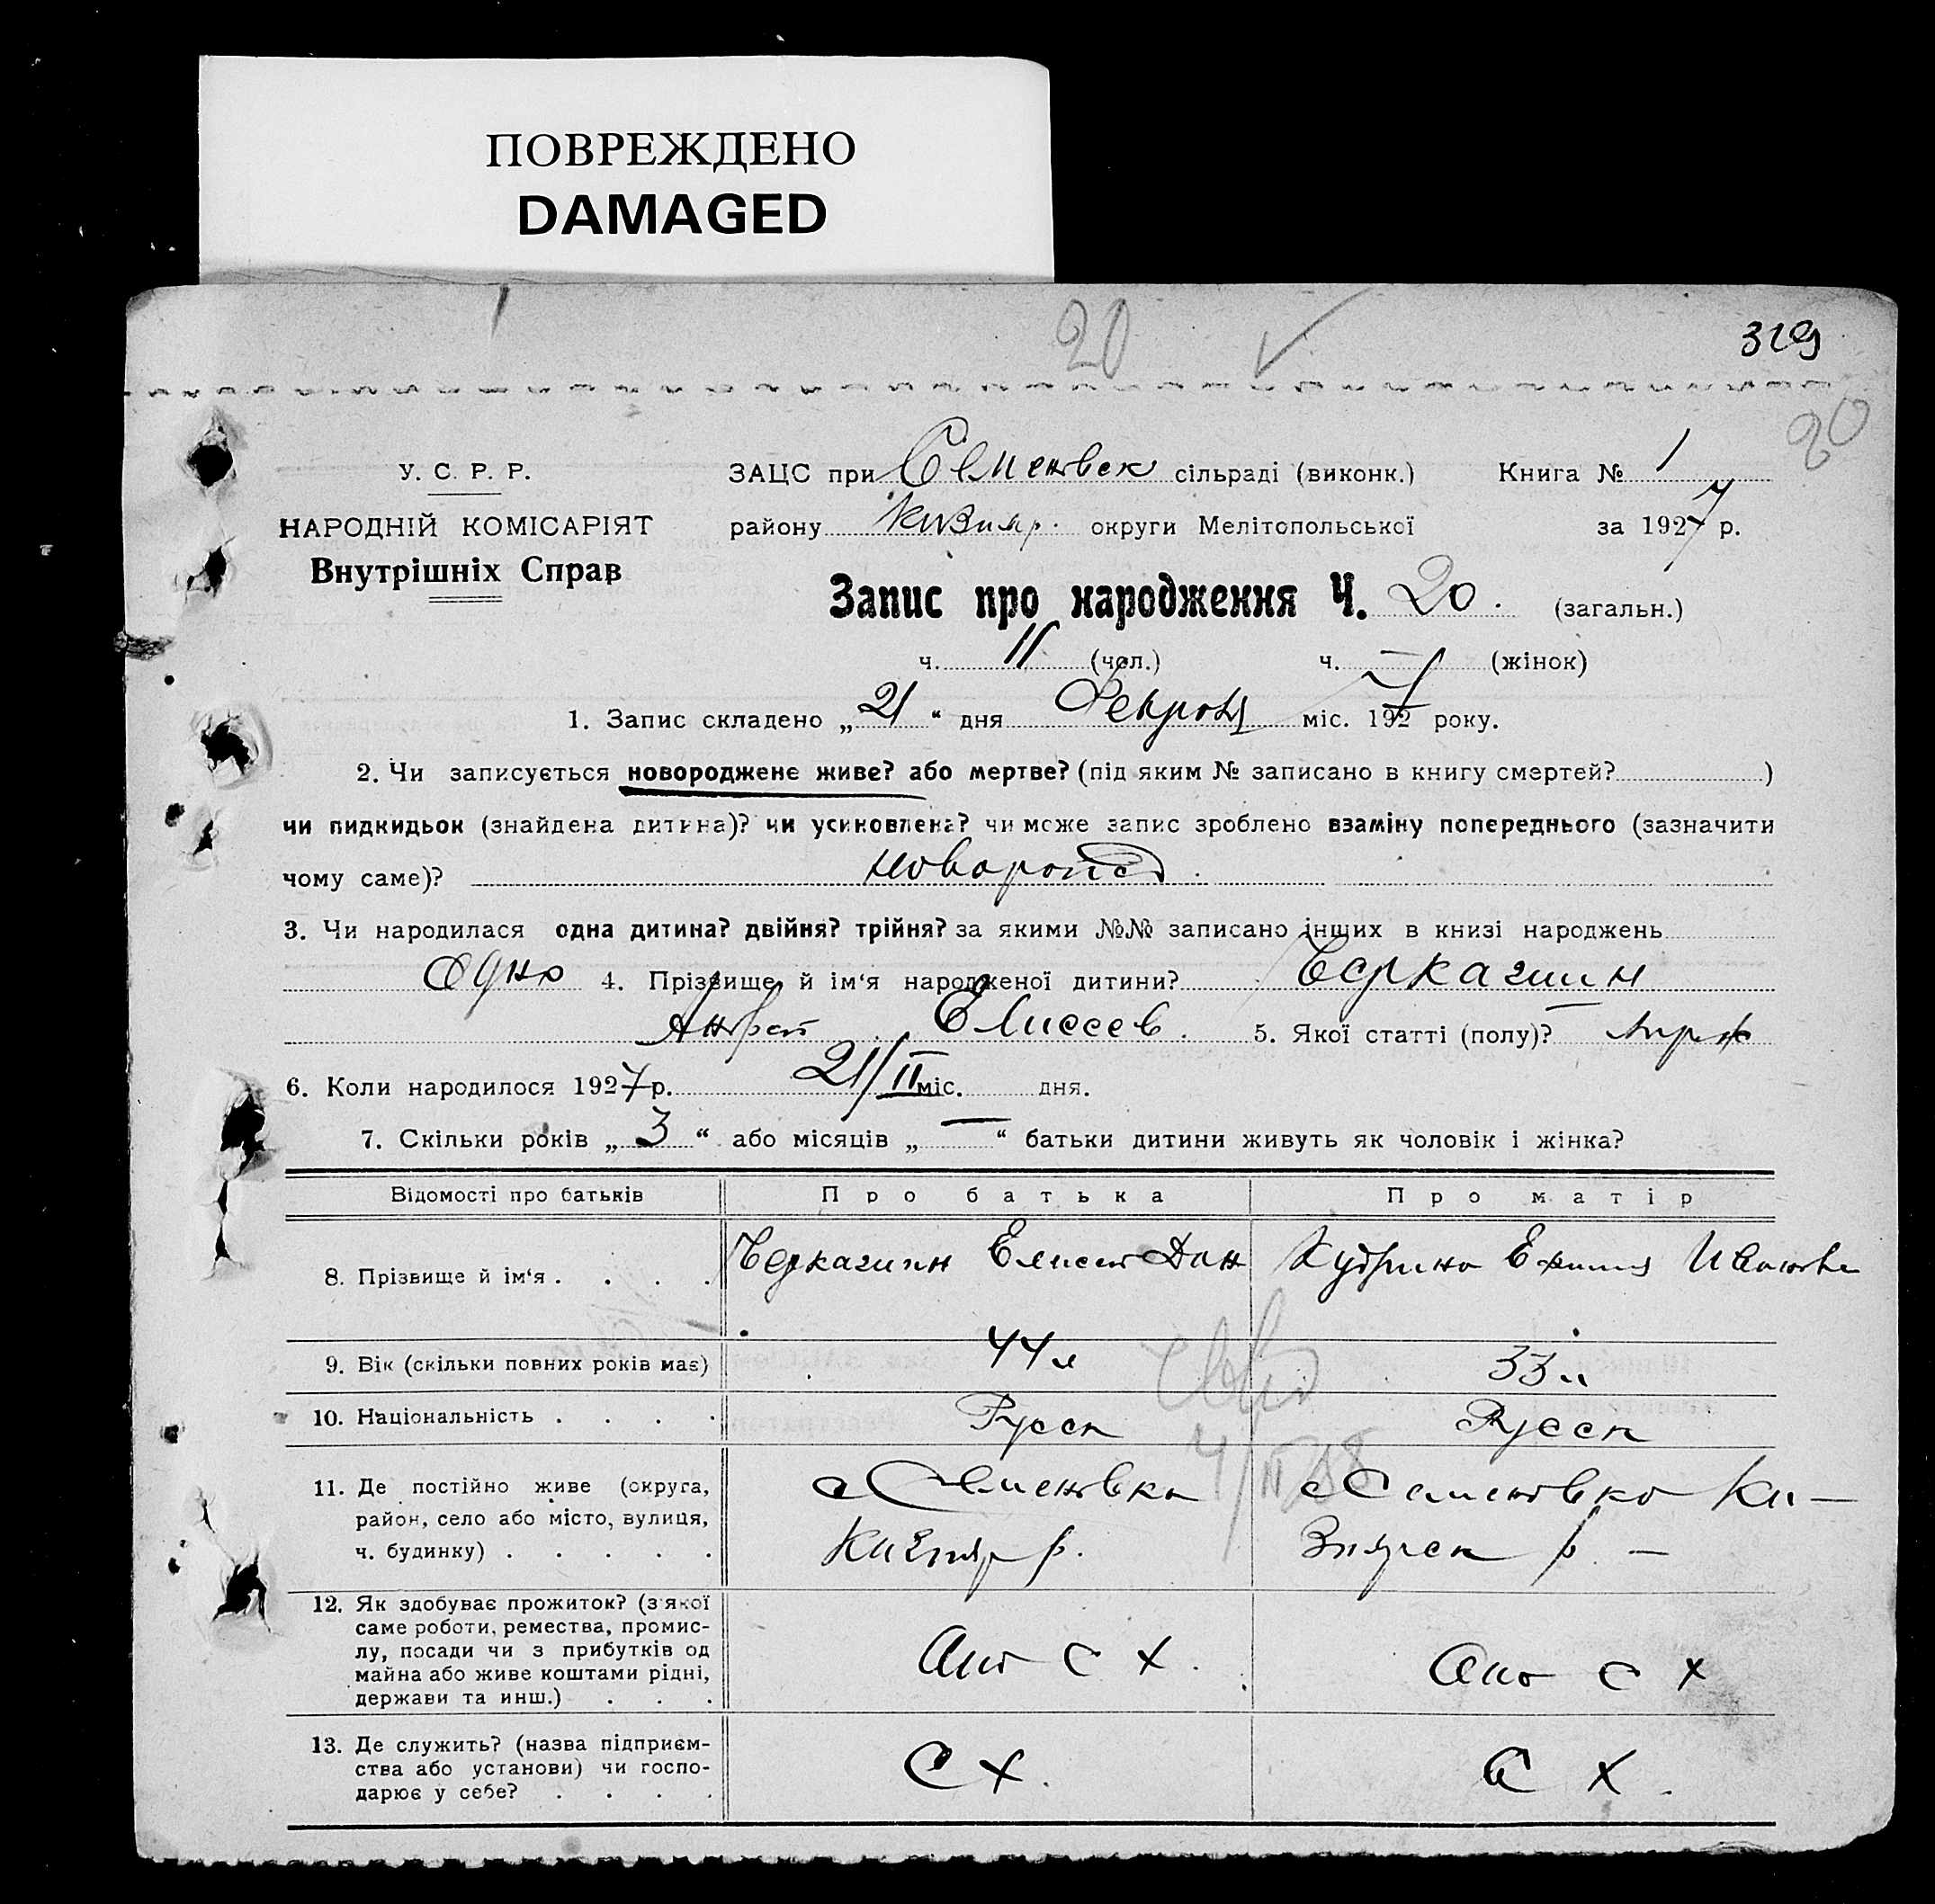 ПОВРЕЖДЕНО
DAMAGED
20
329
20
У. С. Р. Р.
НАРОДНІЙ КОМІСАРІЯТ
Внутрішніх Справ
ЗАЦС при Семеновск сільраді (виконк.) Книга № 1
району Кизияр. округи Мелітопольської за 1927 р.
Запис про народження Ч. 20. (загальн.)
ч. 11 (чол.) ч. — (жінок)
1. Запис складено „21“ дня міс. 1927 року.
2. Чи записується новороджене живе? або мертве? (під яким № записано в книгу смертей? )
чи пидкидьок (знайдена дитина)? чи усиновлена? чи може запис зроблено взаміну попереднього (зазначити
чому саме)?
3. Чи народилася одна дитина? двійня? трійня? за якими №№ записано інших в книзі народжень
Одно 4. Прізвище й ім‘я народженої дитини? Черкашин
Андрей Елисеев. 5. Якої статті (полу)?
6. Коли народилося 1927 р. 21/II міс. дня.
7. Скільки років „3“ або місяців „—“ батьки дитини живуть як чоловік і жінка?
Відомості про батьків Про батька Про матір
8. Прізвище й ім‘я . . . . Черкашин Елисей Дан Кудрина Ивановн
9. Вік (скільки повних років має) 44 л 33 л
10. Національність . . . . Русск Русск
11. Де постійно живе (округа, район, село або місто, вулиця, ч. будинку) . . . . . с Семеновка Кизияр р. с Семеновка Ки-
Зиярск р. —
12. Як здобуває прожиток? (з якої саме роботи, ремества, промислу, посади чи з прибутків од майна або живе коштами рідні, держави та инш.) . . . С Х. С Х
13. Де служить? (назва підприємства або установи) чи господарює у себе? . . . . С Х. С Х.